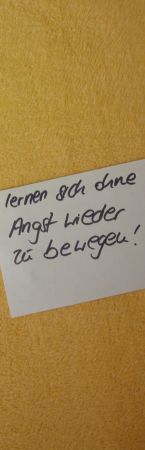 lernen sich ohne
Angst wieder
zu bewegen!